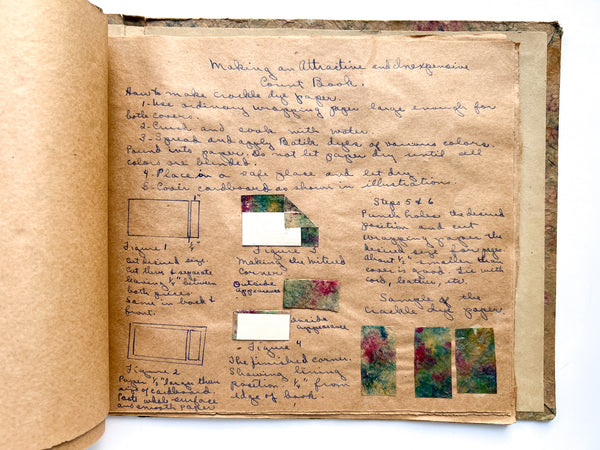 Making an Attractive and Inexpensive
Count Book.
How to make crackle dye paper.
1-Use ordinary wrapping paper large enough for
both covers.
2-Crush and soak with water.
3-Spread and apply Batik dyes of various colors.
Pound into paper. Do not let paper dry until all
colors are blended.
4-Place in a safe place and let dry.
5-Cover cardboard as shown in illustration.
Figure 1
Cut desired size.
Cut thru & separate
leaving ¼" between
both pieces.
Same in back &
front.
Figure 2
Paper ½" larger than
size of cardboard
Paste whole surface
and smooth paper
Figure 3
Making the Mitred
Corners
Outside
appearance
Inside
appearance
Figure 4
The finished corner.
Showing lining
position ¼" from
edge of book.
Steps 5 & 6
Punch holes the desired
position and cut
wrapping paper the
desired size for pages
About ½" smaller than
cover is good. Tie with
cord, leather, etc.
Sample of the
crackle dye paper